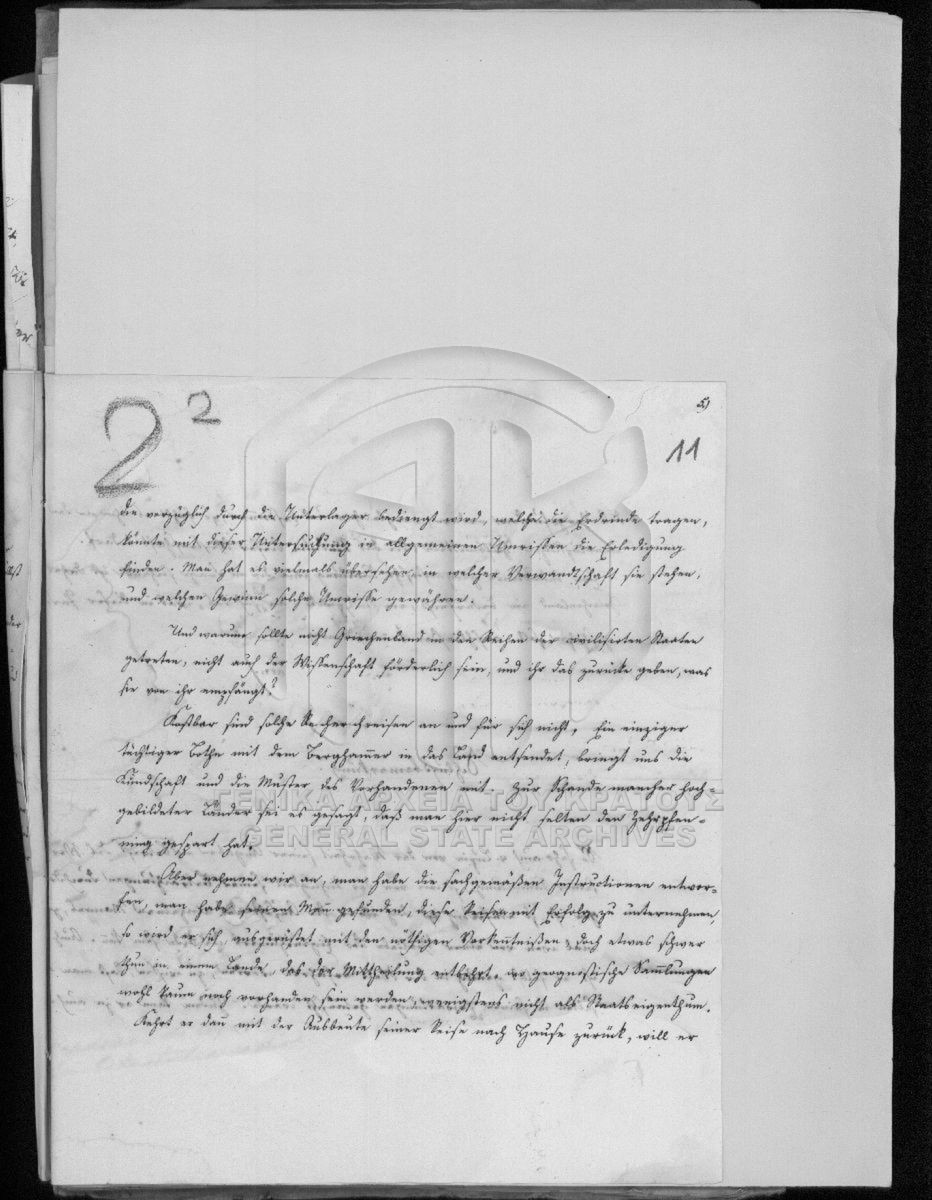 2 2
5)
11
die vorzüglich durch die Unterlager bedingt wird, welche die Erdrinde tragen,
könnte mit dieser Untersuchung in allgemeinen Umrissen die Erledigung
finden. Man hat es vielmals übersehen, in welcher Verwandtschaft sie stehen,
und welchen Gewinn solche Umrisse gewähren.
Und warum sollte nicht Griechenland in den Reihen der civilisirten Staaten
getreten, nicht auch der Wissenschaft förderlich sein, und ihr das zurücke geben, was
sie von ihr empfängt?
Kostbar sind solche Recherchreisen an und für sich nicht. Ein einziger
tüchtiger Bothe mit dem Berghamer in das Land entsendet, bringt uns die
Kundschaft und die Muster des Vorhandenen mit. Zur Schande mancher hoch-
gebildeter Länder sei es gesagt, daß man hier nicht selten den Zehrpfen-
ning gespart hat.
Aber nehmen wir an, man habe die sachgemäßen Instructionen entwor-
fen, man habe seinen Man gefunden, diese Reisen mit Erfolg zu unternehmen,
so wird er sich, ausgerüstet mit den nöthigen Vorkenntnißen, doch etwas schwer
thun in einem Lande, das der Mittheilung entbehrt, wo geognostische Samlungen
wohl kaum noch vorhanden sein werden, wenigstens nicht als Staatseigenthum.
Kehrt er dan mit der Ausbeute seiner Reise nach Hause zurück, will er
ΓΕΝΙΚΑ ΑΡΧΕΙΑ ΤΟΥ ΚΡΑΤΟΥΣ
GENERAL STATE ARCHIVES